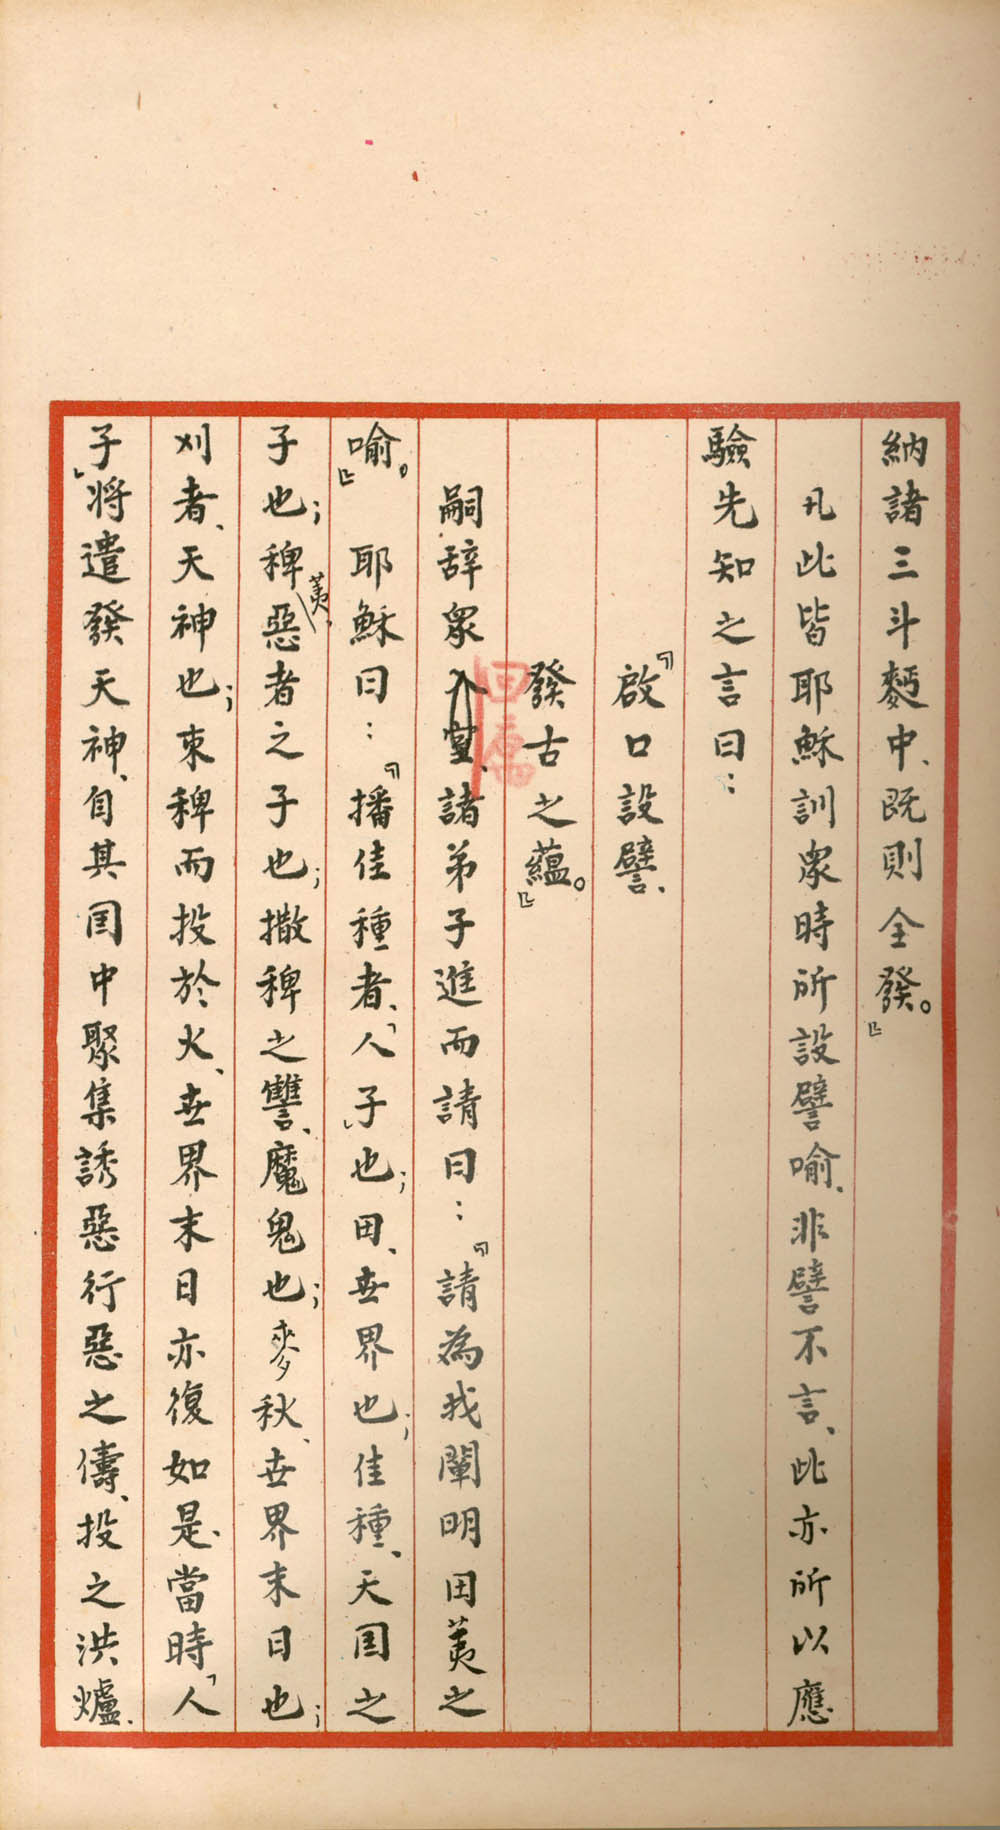 納諸三斗麪中、既則全發。』
凡此皆耶穌訓眾時所設譬喻、非譬不言、此亦所以應
驗先知之言曰：
『啟口設譬、
發古之蘊。』
嗣辭眾入室、諸弟子進而請曰：『請為我闡明田荑之
回寓
喻。』耶穌曰：『播佳種者、「人子」也；田、世界也；佳種、天国之
子也；稗荑、惡者之子也；撒稗之讐、魔鬼也；麥秋、世界末日也；
刈者、天神也；束稗而投於火、世界末日亦復如是、當時「人
子」將遣發天神、自其国中聚集誘惡行惡之儔、投之洪爐、